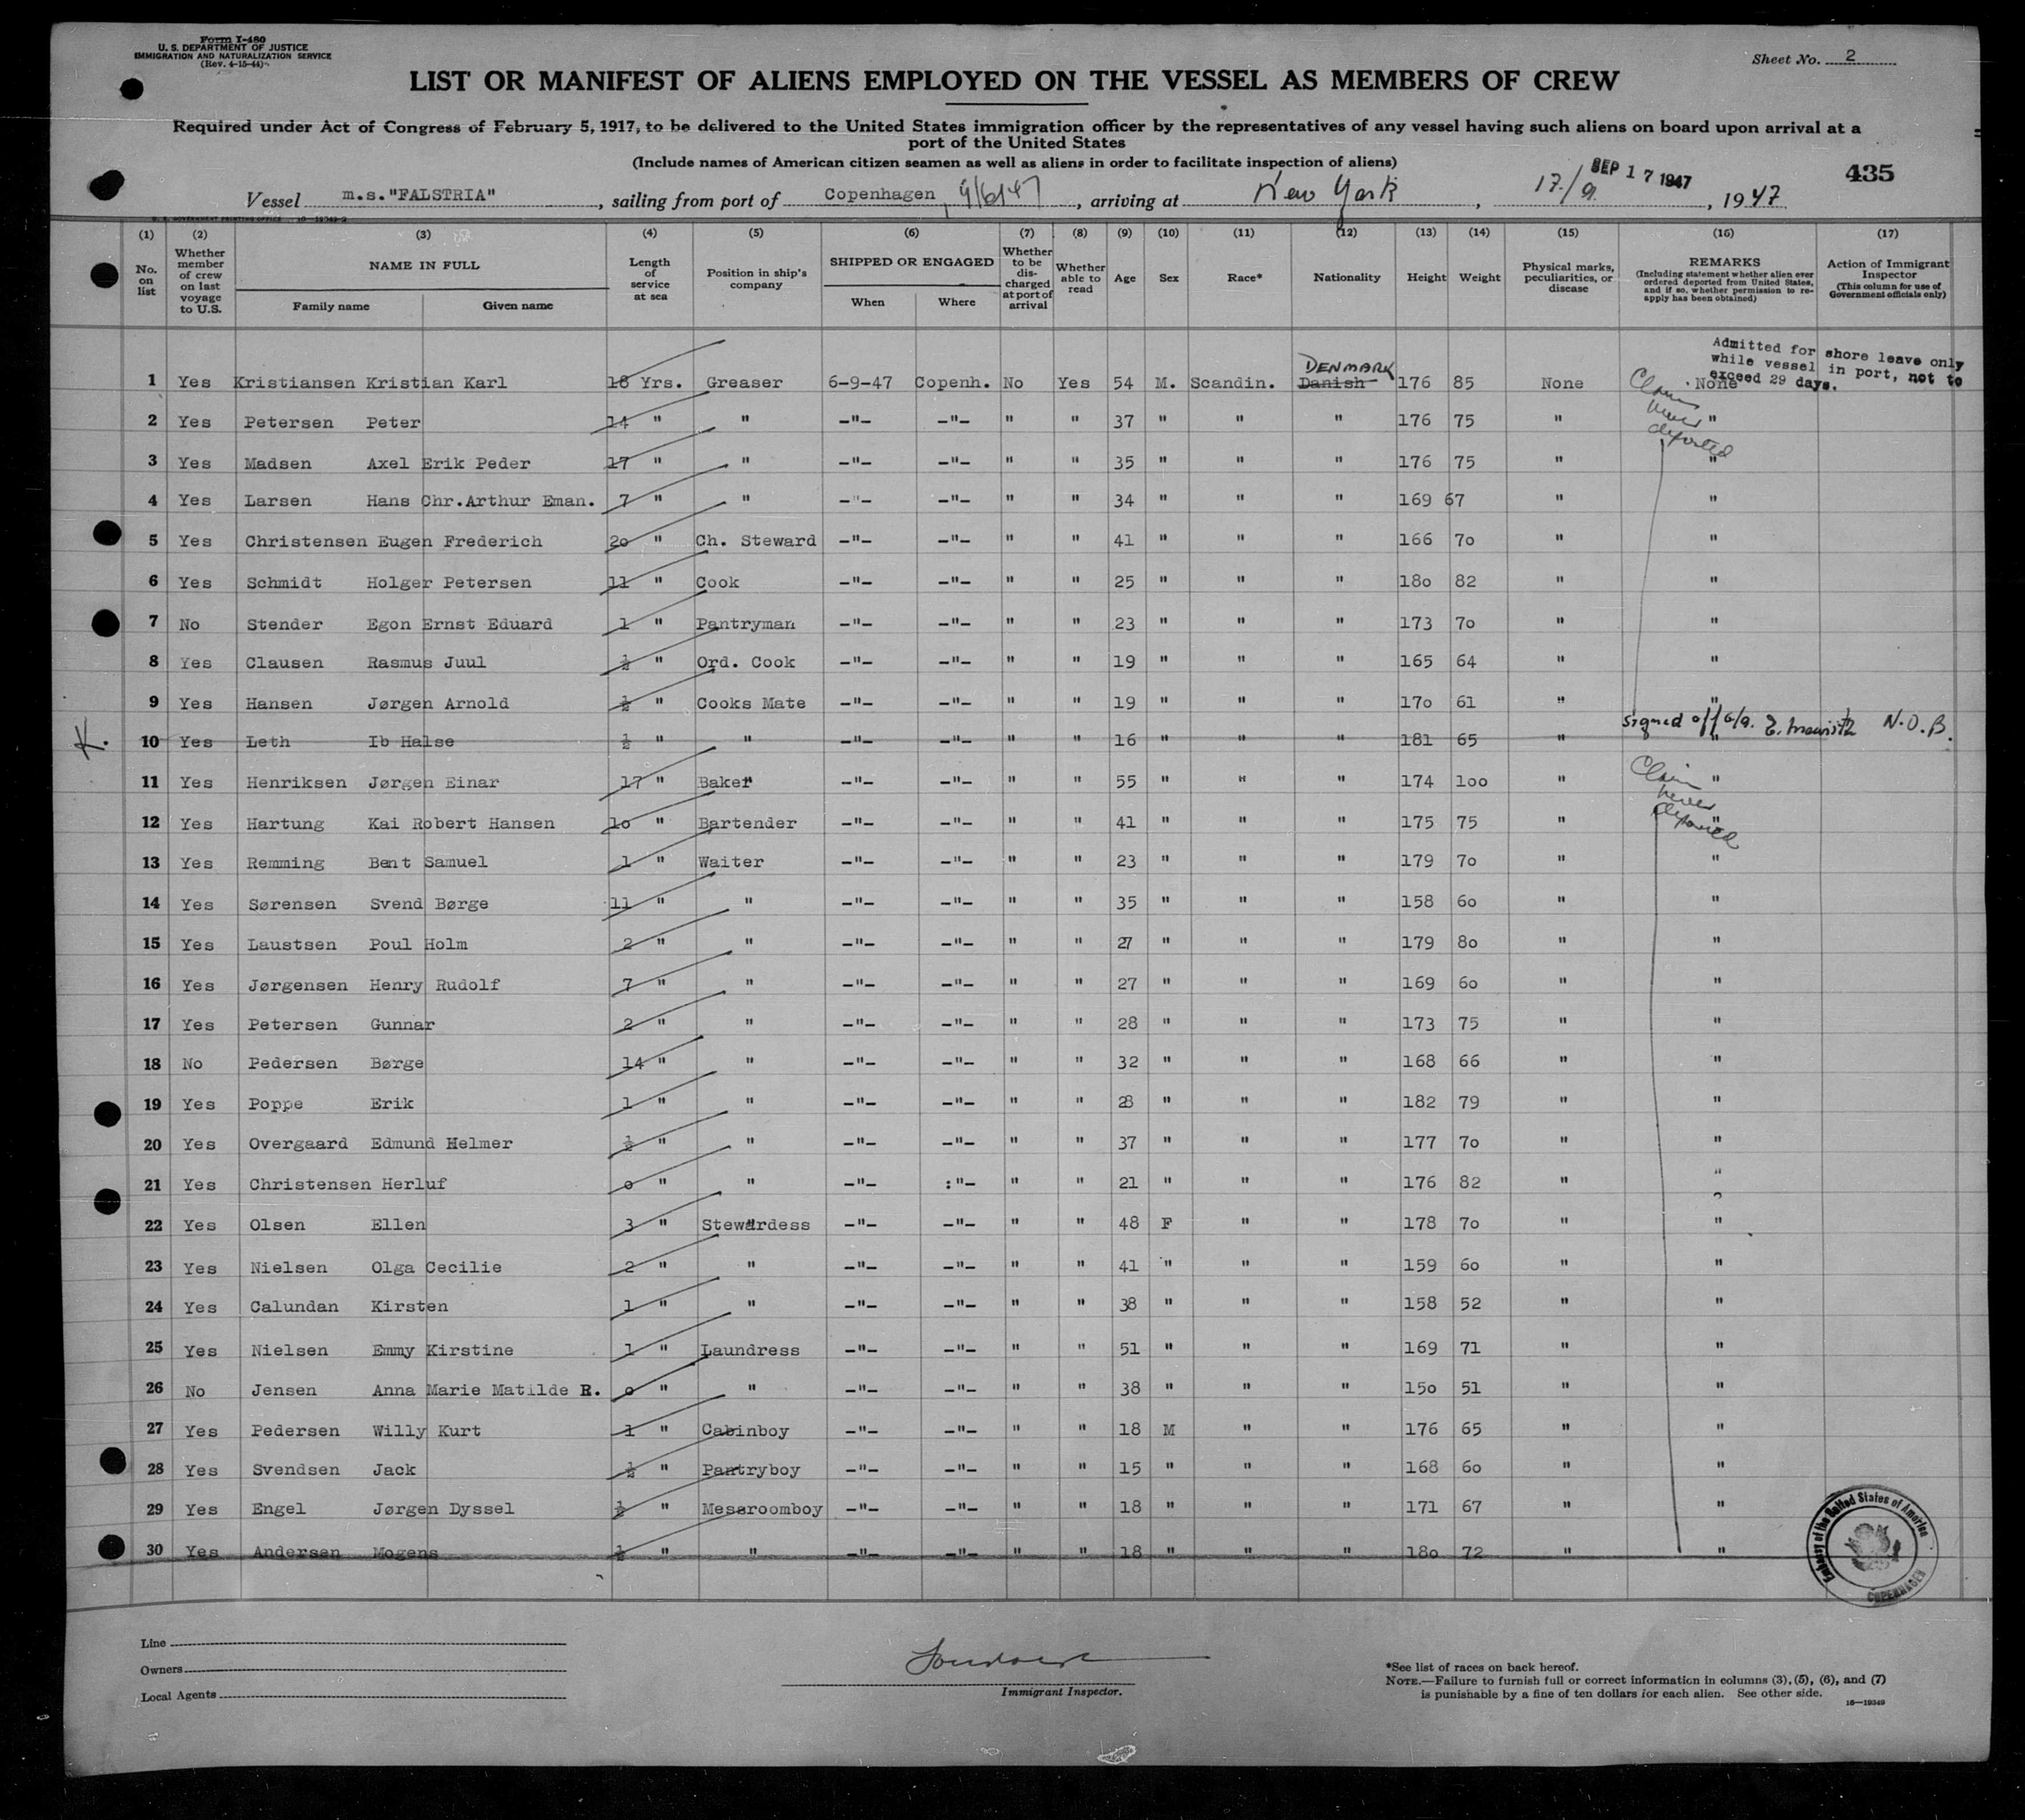 Form I-480
U. S. DEPARTMENT OF JUSTICE
IMMIGRATION AND NATURALIZATION SERVICE
(Rev. 4-15-44)
Sheet No. 2
LIST OR MANIFEST OF ALIENS EMPLOYED ON THE VESSEL AS MEMBERS OF CREW
Required under Act of Congress of February 5, 1917, to be delivered to the United States immigration officer by the representatives of any vessel having such aliens on board upon arrival at a
port of the United States
(Include names of American citizen seamen as well as aliens in order to facilitate inspection of aliens)
SEP 17 1947
435
Vessel m.s."FALSTRIA", sailing from port of Copenhagen, 9/6/47, arriving at New York, 17/9, 1947
(1) (2) (3) (4) (5) (6) (7) (8) (9) (10) (11) (12) (13) (14) (15) (16) (17)
No. on list
Whether member of crew on last voyage to U.S.
NAME IN FULL
Family name Given name
Length of service at sea
Position in ship's company
SHIPPED OR ENGAGED
When Where
Whether to be discharged at port of arrival
Whether able to read
Age
Sex
Race*
Nationality
Height
Weight
Physical marks, peculiarities, or disease
REMARKS
(Including statement whether alien ever ordered deported from United States, and if so, whether permission to re-apply has been obtained)
Action of Immigrant Inspector
(This column for use of Government officials only)
Admitted for shore leave only
while vessel in port, not to
exceed 29 days.
DENMARK
1 Yes Kristiansen Kristian Karl 18 Yrs. Greaser 6-9-47 Copenh. No Yes 54 M. Scandin. Danish 176 85 None None
Claims never deported
2 Yes Petersen Peter 14 " " -"- -"- " " 37 " " " 176 75 " "
3 Yes Madsen Axel Erik Peder 17 " " -"- -"- " " 35 " " " 176 75 " "
4 Yes Larsen Hans Chr.Arthur Eman. 7 " " -"- -"- " " 34 " " " 169 67 " "
5 Yes Christensen Eugen Frederich 2o " Ch. Steward -"- -"- " " 41 " " " 166 7o " "
6 Yes Schmidt Holger Petersen 11 " Cook -"- -"- " " 25 " " " 18o 82 " "
7 No Stender Egon Ernst Eduard 1 " Pantryman -"- -"- " " 23 " " " 173 7o " "
8 Yes Clausen Rasmus Juul ½ " Ord. Cook -"- -"- " " 19 " " " 165 64 " "
9 Yes Hansen Jørgen Arnold ½ " Cooks Mate -"- -"- " " 19 " " " 17o 61 " "
signed off N.O.B.
K. 10 Yes Leth Ib Halse ½ " " -"- -"- " " 16 " " " 181 65 " "
11 Yes Henriksen Jørgen Einar 17 " Baker -"- -"- " " 55 " " " 174 1oo " "
Claims never deported
12 Yes Hartung Kai Robert Hansen 1o " Bartender -"- -"- " " 41 " " " 175 75 " "
13 Yes Remming Bent Samuel 1 " Waiter -"- -"- " " 23 " " " 179 7o " "
14 Yes Sørensen Svend Børge 11 " " -"- -"- " " 35 " " " 158 6o " "
15 Yes Laustsen Poul Holm 2 " " -"- -"- " " 27 " " " 179 8o " "
16 Yes Jørgensen Henry Rudolf 7 " " -"- -"- " " 27 " " " 169 6o " "
17 Yes Petersen Gunnar 2 " " -"- -"- " " 28 " " " 173 75 " "
18 No Pedersen Børge 14 " " -"- -"- " " 32 " " " 168 66 " "
19 Yes Poppe Erik 1 " " -"- -"- " " 28 " " " 182 79 " "
20 Yes Overgaard Edmund Helmer ½ " " -"- -"- " " 37 " " " 177 7o " "
21 Yes Christensen Herluf o " " -"- :"- " " 21 " " " 176 82 " "
22 Yes Olsen Ellen 3 " Stewardess -"- -"- " " 48 F " " 178 7o " "
23 Yes Nielsen Olga Cecilie 2 " " -"- -"- " " 41 " " " 159 6o " "
24 Yes Calundan Kirsten 1 " " -"- -"- " " 38 " " " 158 52 " "
25 Yes Nielsen Emmy Kirstine 1 " Laundress -"- -"- " " 51 " " " 169 71 " "
26 No Jensen Anna Marie Matilde R. o " " -"- -"- " " 38 " " " 15o 51 " "
27 Yes Pedersen Willy Kurt 1 " Cabinboy -"- -"- " " 18 M " " 176 65 " "
28 Yes Svendsen Jack ½ " Pantryboy -"- -"- " " 15 " " " 168 6o " "
29 Yes Engel Jørgen Dyssel ½ " Messroomboy -"- -"- " " 18 " " " 171 67 " "
30 Yes Andersen Mogens ½ " " -"- -"- " " 18 " " " 18o 72 " "
Embassy of the United States of America
COPENHAGEN
Line
Owners
Local Agents
Immigrant Inspector.
*See list of races on back hereof.
NOTE.—Failure to furnish full or correct information in columns (3), (5), (6), and (7)
is punishable by a fine of ten dollars for each alien. See other side.
16—19349